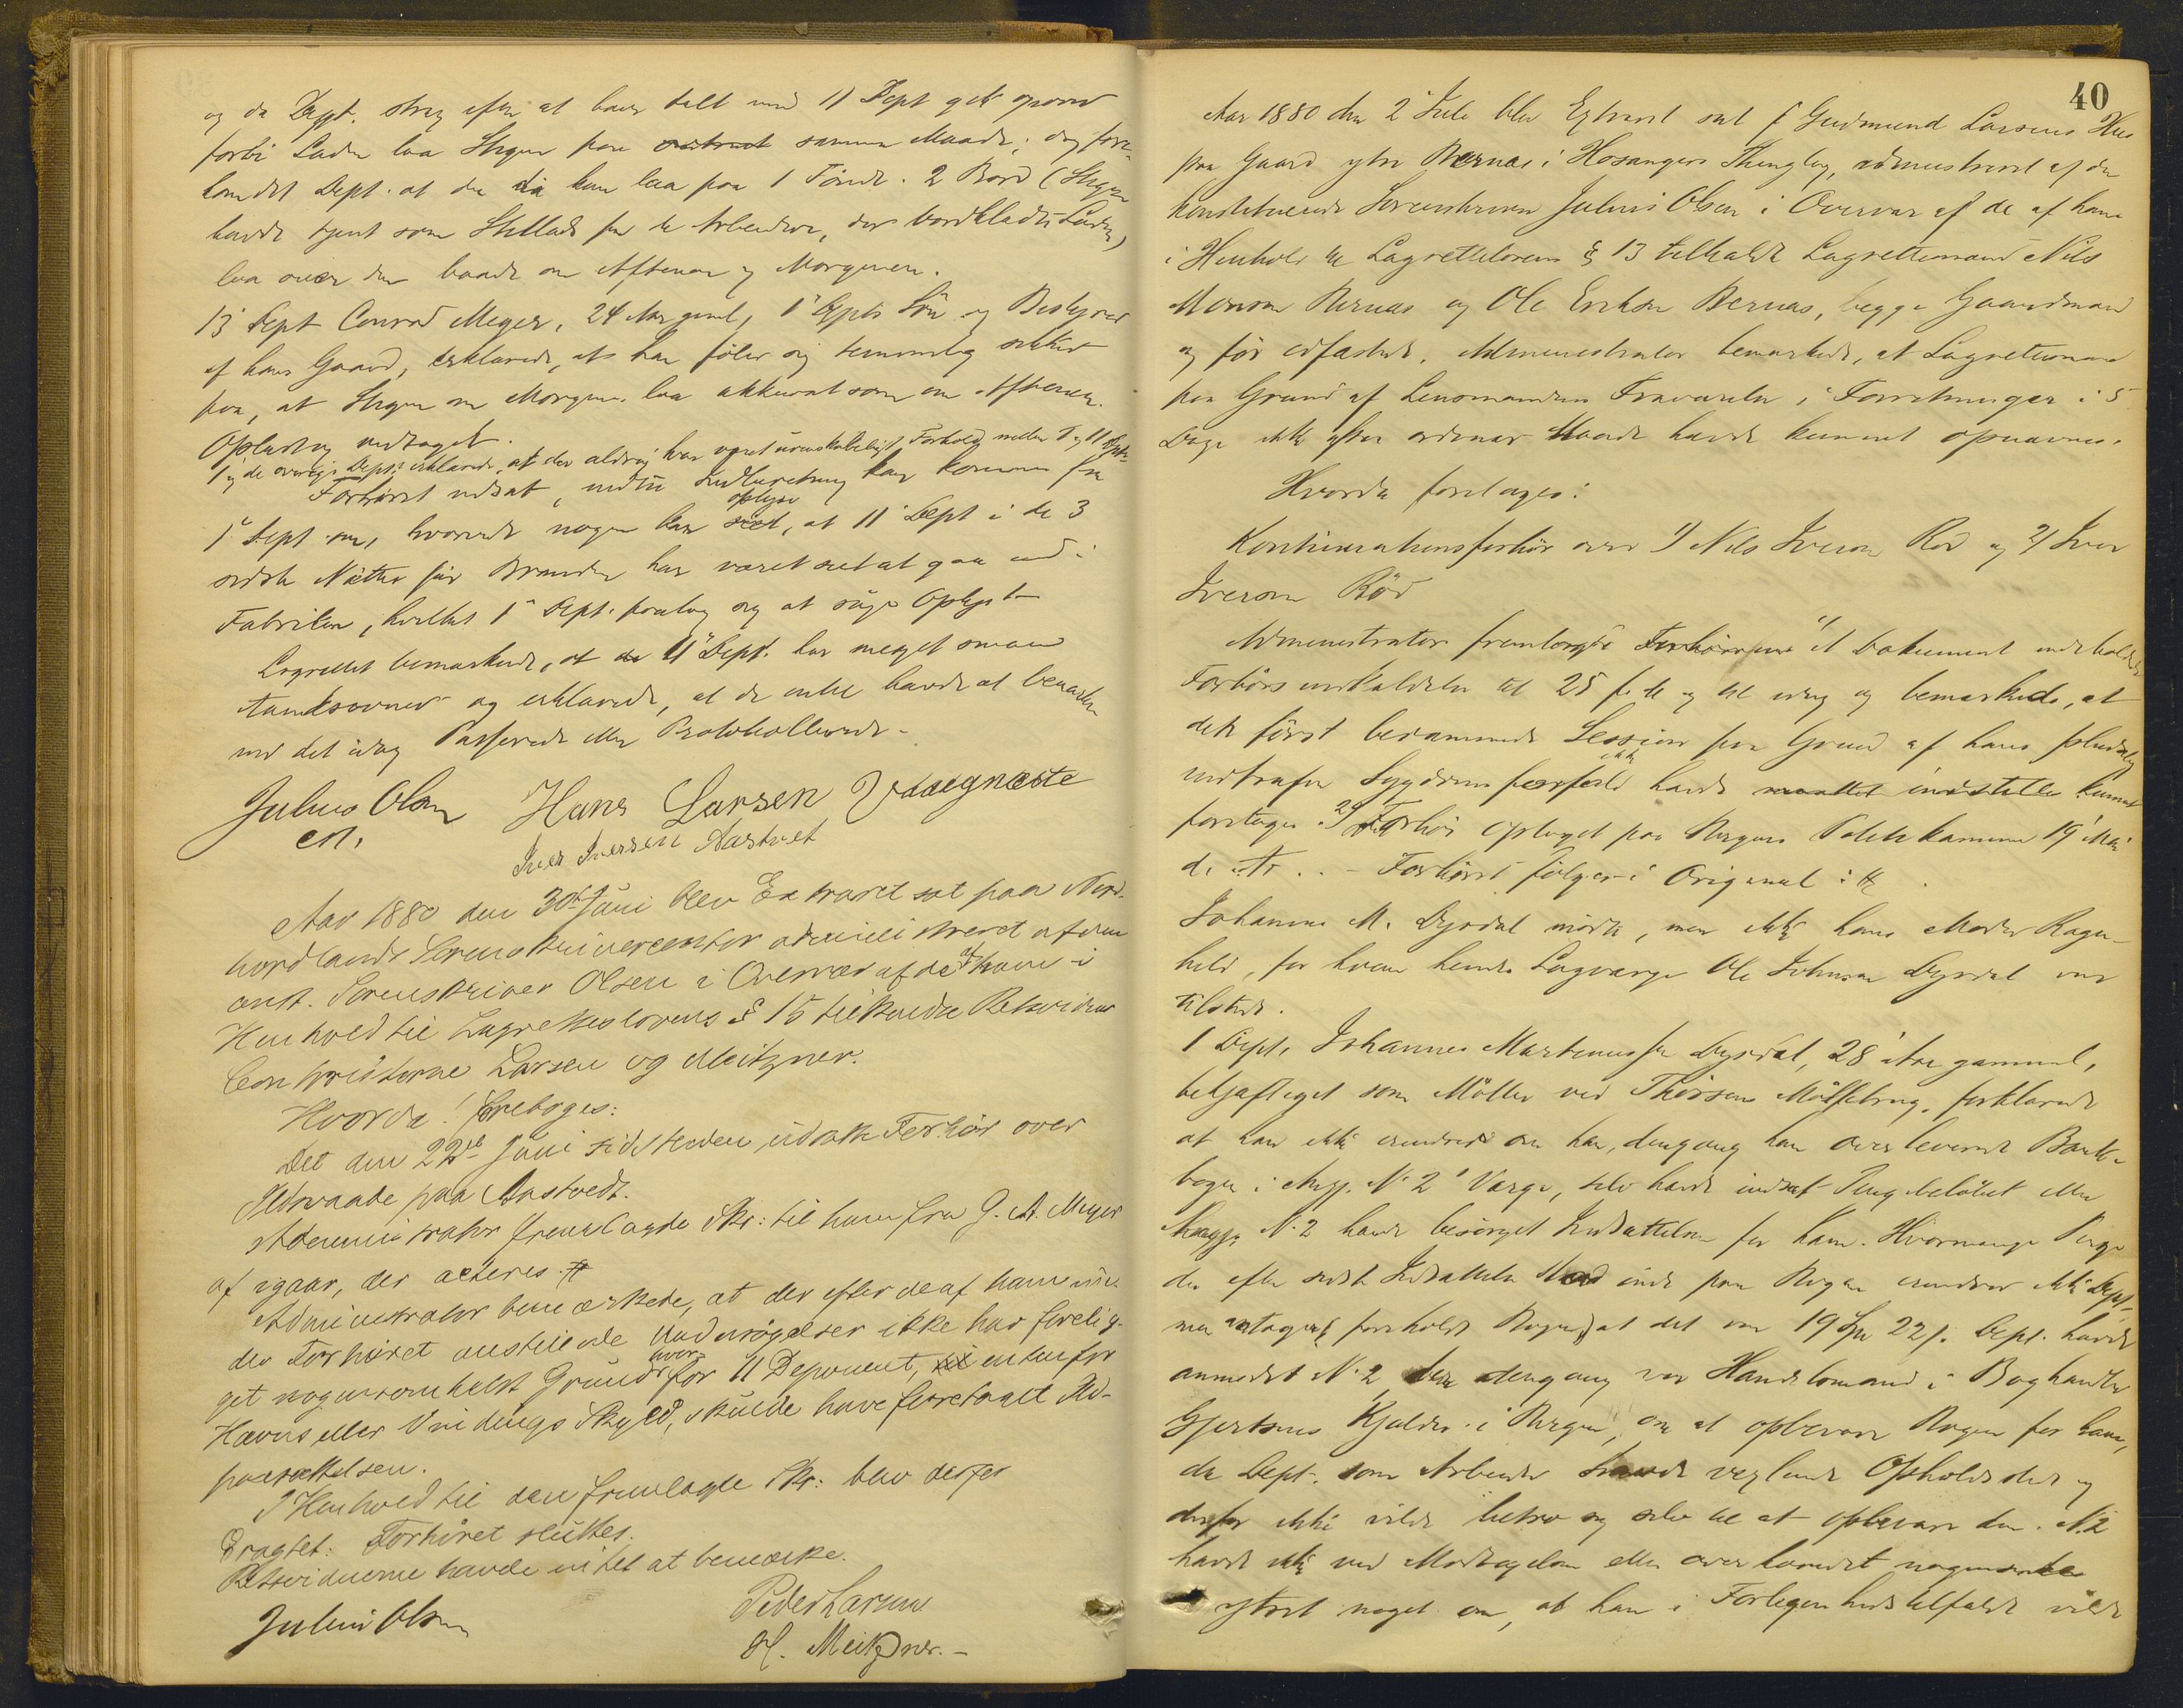 og da Dept. strax efter at have talt med 11 Dept gik opover
forbi Laden laa Stigen paa samme Maade; dog fore-
kom det Dept. at den da kun laa paa 1 Tönde. 2 Bord (Stigen
havde tjent som Stillads for de Arbeidere, der bordklædte Laden)
laa over den baade om Aftenen og Morgenen.
13 Dept Conrad Meyer, 24 Aar gaml, 1 Depts Sön og Bestyrer
af hans Gaard, erklærede, at han föler sig temmelig sikker
paa, at Stigen om Morgenen laa akkurat som om Aftenen.
Oplæst og vedtaget.
1 og de øvrige Depts erklærede, at der aldrig har været uvenskabeligt Forhold mellem 1 og 11 Dept.
Forhöret udsat, indtil Indberetning kan komme fra
1 Dept om, hvorvidt nogen kan oplyse, at 11 Dept i de 3
sidste Nætter för Branden har været seet at gaa ud i
Fabriken, hvilket 1 Dept. paatog sig at söge Oplyst
Lagrettet bemærkede, at 11 Dept. har meget smaa
Aandsevner og erklærede, at de intet havde at bemærke
ved det idag Passerede eller Protokollerede.
Julius Olsen Hans Larsen Udaegnæste
cst. Iver Iversen Aastvet
Aar 1880 den 30te Juni blev Extraret sat paa Nord-
hordlands Sorenskrivercontor administreret af den
const. Sorenskriver Olsen i Overvær af de af ham i
Henhold til Lagretteslovens § 15 tilkaldte Retsvidner
Contoristerne Larsen og Meitzner.
Hvorda! foretoges:
Det den 22de Juni sidstleden udsatte Forhör over
Ildsvaade paa Aastvedt.
Administrator fremlagde Skr: til ham fra J. A. Meyer
af igaar, der acteres
Administrator bemærkede, at der efter de af ham un-
der Forhöret anstillede Undersögelser ikke har forelig-
get nogensomhelst Grund hvorfor 11 Deponent, enten for
Hævns eller Vindings Skyld, skulde have foretaget Ild-
paasættelsen.
I Henhold til den fremlagte Skr: blev derfor
Eragtet: Forhöret sluttes.
Retsvidnerne havde intet at bemærke.
Julius Olsen Peder Larsen
H. Meitzner.-
40
Aar 1880 den 2 Juli blev Extraret sat i Gudmund Larsens Hus
paa Gaard ytre Bernes i Hosangers Thinglag, administreret af den
konstituerede Sorenskriver Julius Olsen i Overvær af de af ham
i Henhold til Lagretteloven § 13 tilkaldte Lagrettemænd Nils
Monsen Bernes og Ole Eriksen Bernes, begge Gaardmænd
og før edfæstede. Administrator bemærkede, at Lagrettemænd
paa Grund af Lensmandens Fraværelse i Forretninger i 5
Dage ikke efter ordinær Maade havde kunnet opnævnes.
Hvorda foretages:
Kontinuationsforhör over 1) Nils Iversen Röd og 2) Iver
Iversen Röd
Administrator fremlagde 1) et Dokument indeholdende
Forhörs indkaldelse til 25 f. M og til idag og bemærkede, at
det först berammede Session paa Grund af hans pludselig
indtrufne Sygdom ikke havde kunnet
foretages 2) Forhör optaget paa Bergens Politikammer 19 Mai
d. A. . - Forhöret fölger i Original
Johannes M. Dyrdal mödte, men ikke hans Moder Ragn-
hild, for hvem hendes Lagværge Ole Johnsen Dyrdal var
tilstede.
1 Dept. Johannes Martinussen Dyrdal, 28 Aar gammel,
beskjæftiget som Möller ved Thörsens Möllebrug, forklarede
at han ikke erindrede om han, dengang han overleverede Bank-
bogen i Angj. N. 2 Værge, selv havde indsat Pengebelöbet eller
Angj. N. 2 havde besörget Indsættelsen for ham. Hvormange Penge
der efter sidste Indsættelse stod inde paa Bogen erindrer ikke Dept.
men antager (foreholdt Bogen) at det var 19 Spd 22 s. Dept. havde
anmodet N. 2 der dengang var Handelsmand i Boghandler
Gjertsens Kjælder i Bergen, om at opbevare Bogen for ham,
da Dept. som Arbeider havde vexlende Opholdssted og
derfor ikke vilde betro sig selv til at opbevare den. N. 2
havde ikke ved Modtagelsen eller overhovedet nogensinde
ytret noget om, at han i Forlegenheds tilfælde vilde